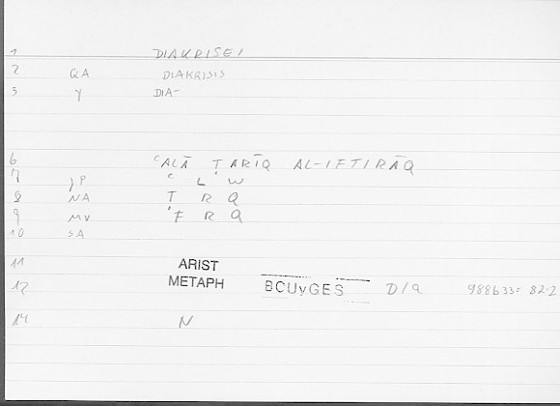 1 DIAKRISEI
2 QA DIAKRISIS
3 γ DIA-
6 ʿALĀ ṬARĪQ AL-IFTIRĀQ
7 γP ʿ L W
8 NA Ṭ R Q
9 MV F R Q
10 SA
11 ARIST
METAPH
12 BOUyGES D/a 988b33= 82-2
14 N